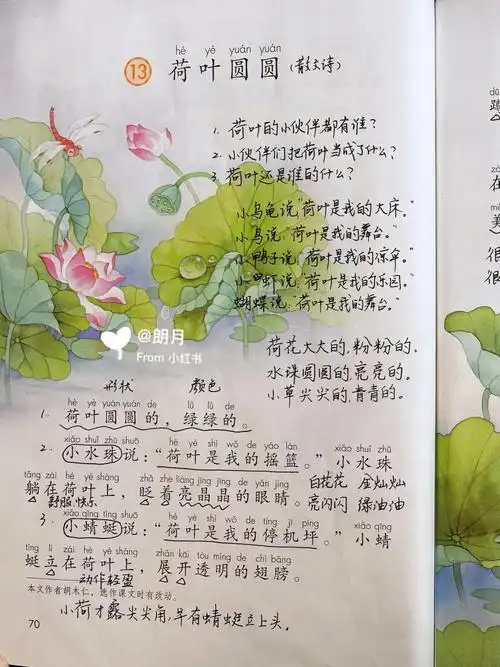 hé yè yuán yuán
13 荷叶圆圆 (散文诗)
1. 荷叶的小伙伴都有谁?
2. 小伙伴们把荷叶当成了什么?
3. 荷叶还是谁的什么?
小乌龟说:"荷叶是我的大床。"
小鸟说:"荷叶是我的舞台。"
小鸭子说:"荷叶是我的凉伞。"
小虾说:"荷叶是我的乐园。"
蝴蝶说:"荷叶是我的舞台。"
荷花大大的,粉粉的。
水珠圆圆的,亮亮的。
小草尖尖的,青青的。
@朗月
From 小红书
形状 颜色
hé yè yuán yuán de lǜ lǜ de
1. 荷叶圆圆的,绿绿的。
xiǎo shuǐ zhū shuō hé yè shì wǒ de yáo lán
2. 小水珠说:“荷叶是我的摇篮。”小水珠
tǎng zài hé yè shàng zhǎ zhe liàng jīng jīng de yǎn jīng
躺在荷叶上,眨着亮晶晶的眼睛。
白花花 金灿灿
亮闪闪 绿油油
舒服 快乐
xiǎo qīng tíng shuō hé yè shì wǒ de tíng jī píng
3. 小蜻蜓说:“荷叶是我的停机坪。”小蜻
tíng lì zài hé yè shàng zhǎn kāi tòu míng de chì bǎng
蜓立在荷叶上,展开透明的翅膀。
动作轻盈
本文作者胡木仁,选作课文时有改动。
小荷才露尖尖角,早有蜻蜓立上头。
70